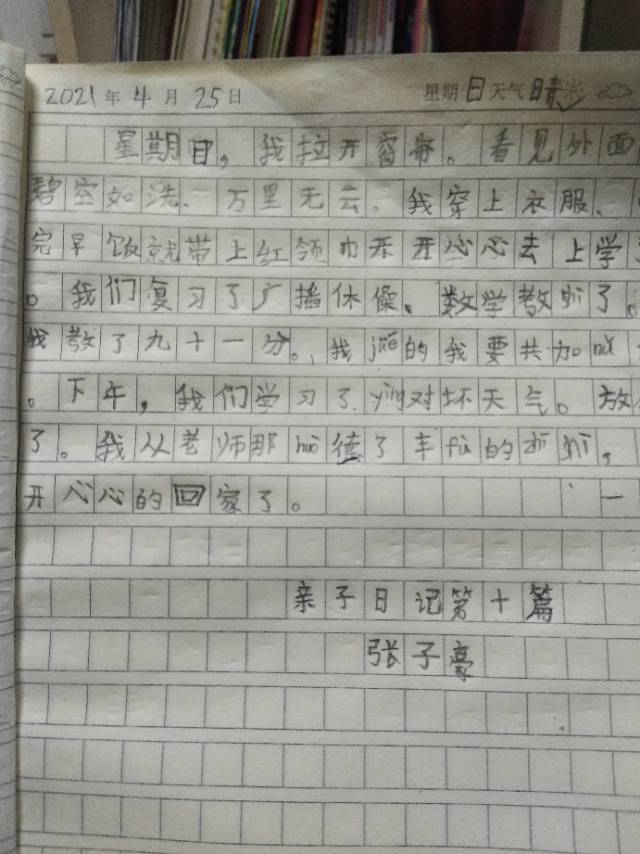 2021年4月25日 星期日天气晴
星期日，我拉开窗帘。看见外面
碧空如洗、万里无云、我穿上衣服、
完早饭就带上红领巾开开心心去上学
。我们复习了广播体操、数学考shì了。
我考了九十一分。，我jué的我要共加
。下午，我们学习了yìng对坏天气。放
了。我从老师那huò得了丰fù的
开心心的回家了。 一
亲子日记第十篇
张子豪